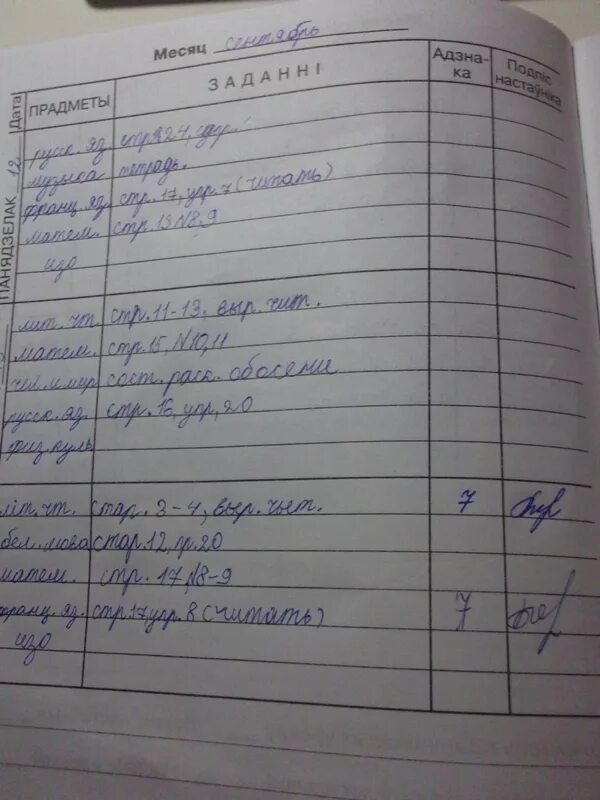 Месяц сентябрь
Дата ПРАДМЕТЫ ЗАДАННІ Адзна-ка Подпіс настаўніка
ПАНЯДЗЕЛАК 12
русск. яз. стр. 24, упр.
музыка тетрадь.
франц. яз. стр. 17, упр. 7 (читать)
матем. стр. 15 №8-9
изо
лит. чт. стр. 11-13, выр. чит.
матем. стр. 15, №10, 11
чел. и мир сост. расск. об осени
русск. яз. стр. 16, упр. 20
физ. куль
літ. чт. стар. 3-4, выр. чыт. 7
бел. мова стар. 12, пр. 20
матем. стр. 17 №8-9
франц. яз. стр. 17 упр. 8 (читать) 7
изо